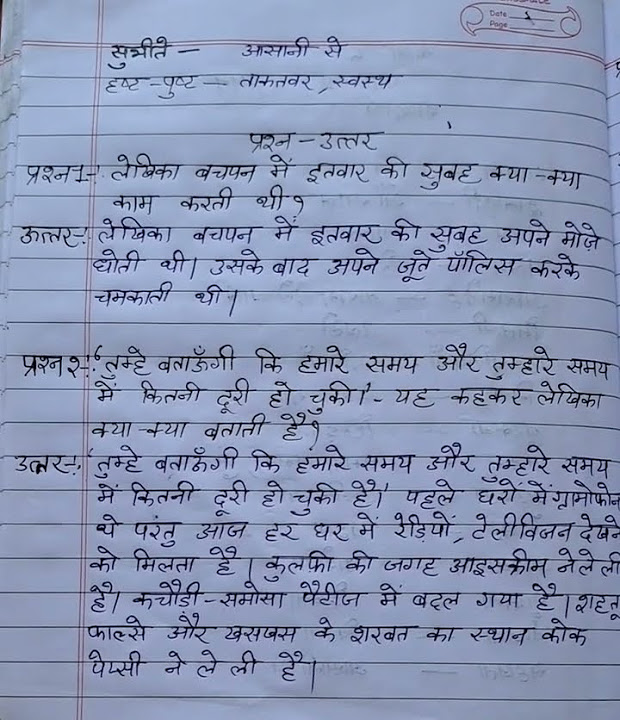 Date
Page
सुभीते — आसानी से
हृष्ट-पुष्ट — ताकतवर, स्वस्थ
प्रश्न-उत्तर
प्रश्न1-: लेखिका बचपन में इतवार की सुबह क्या-क्या
काम करती थी?
उत्तर-: लेखिका बचपन में इतवार की सुबह अपने मोज़े
धोती थी। उसके बाद अपने जूते पॉलिस करके
चमकाती थी।
प्रश्न२-: 'तुम्हे बताऊँगी कि हमारे समय और तुम्हारे समय
में कितनी दूरी हो चुकी।'- यह कहकर लेखिका
क्या-क्या बताती है?
उत्तर-: 'तुम्हे बताऊँगी कि हमारे समय और तुम्हारे समय
में कितनी दूरी हो चुकी है।' पहले घरों में ग्रामोफोन
थे परंतु आज हर घर में रेडियों, टेलीविजन देखने
को मिलता है। कुलफी की जगह आइसक्रीम ने ले ली
है। कचौड़ी-समोसा पैटीज में बदल गया है। शहतू
फाल्से और खसखस के शरबत का स्थान कोक
पेप्सी ने ले ली है।